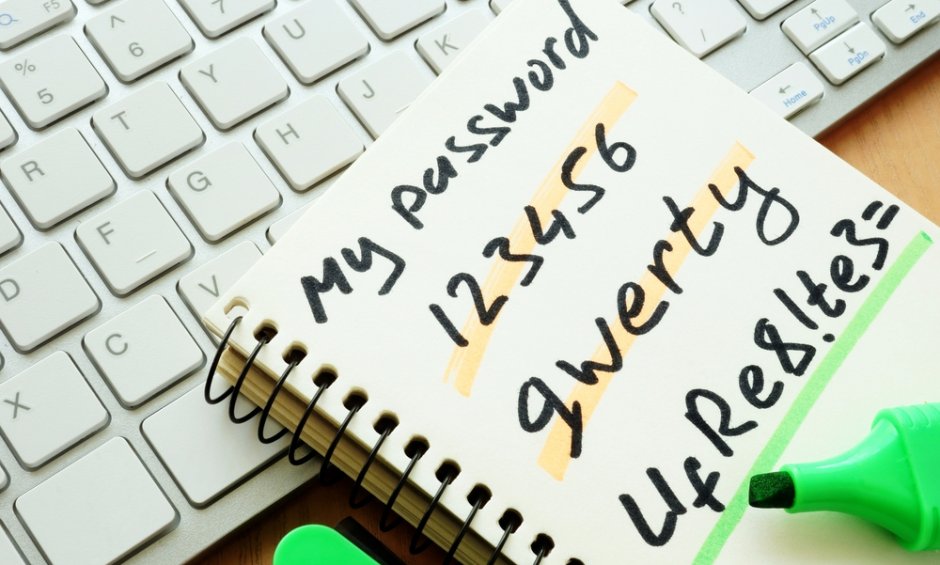 My password
123456
qwerty
UfRe8!te3=
F5
^
6
%
5
Y
T
R
J
K
H
G
F
D
V
C
X
?
/
PgUp
PgDn
End
Home